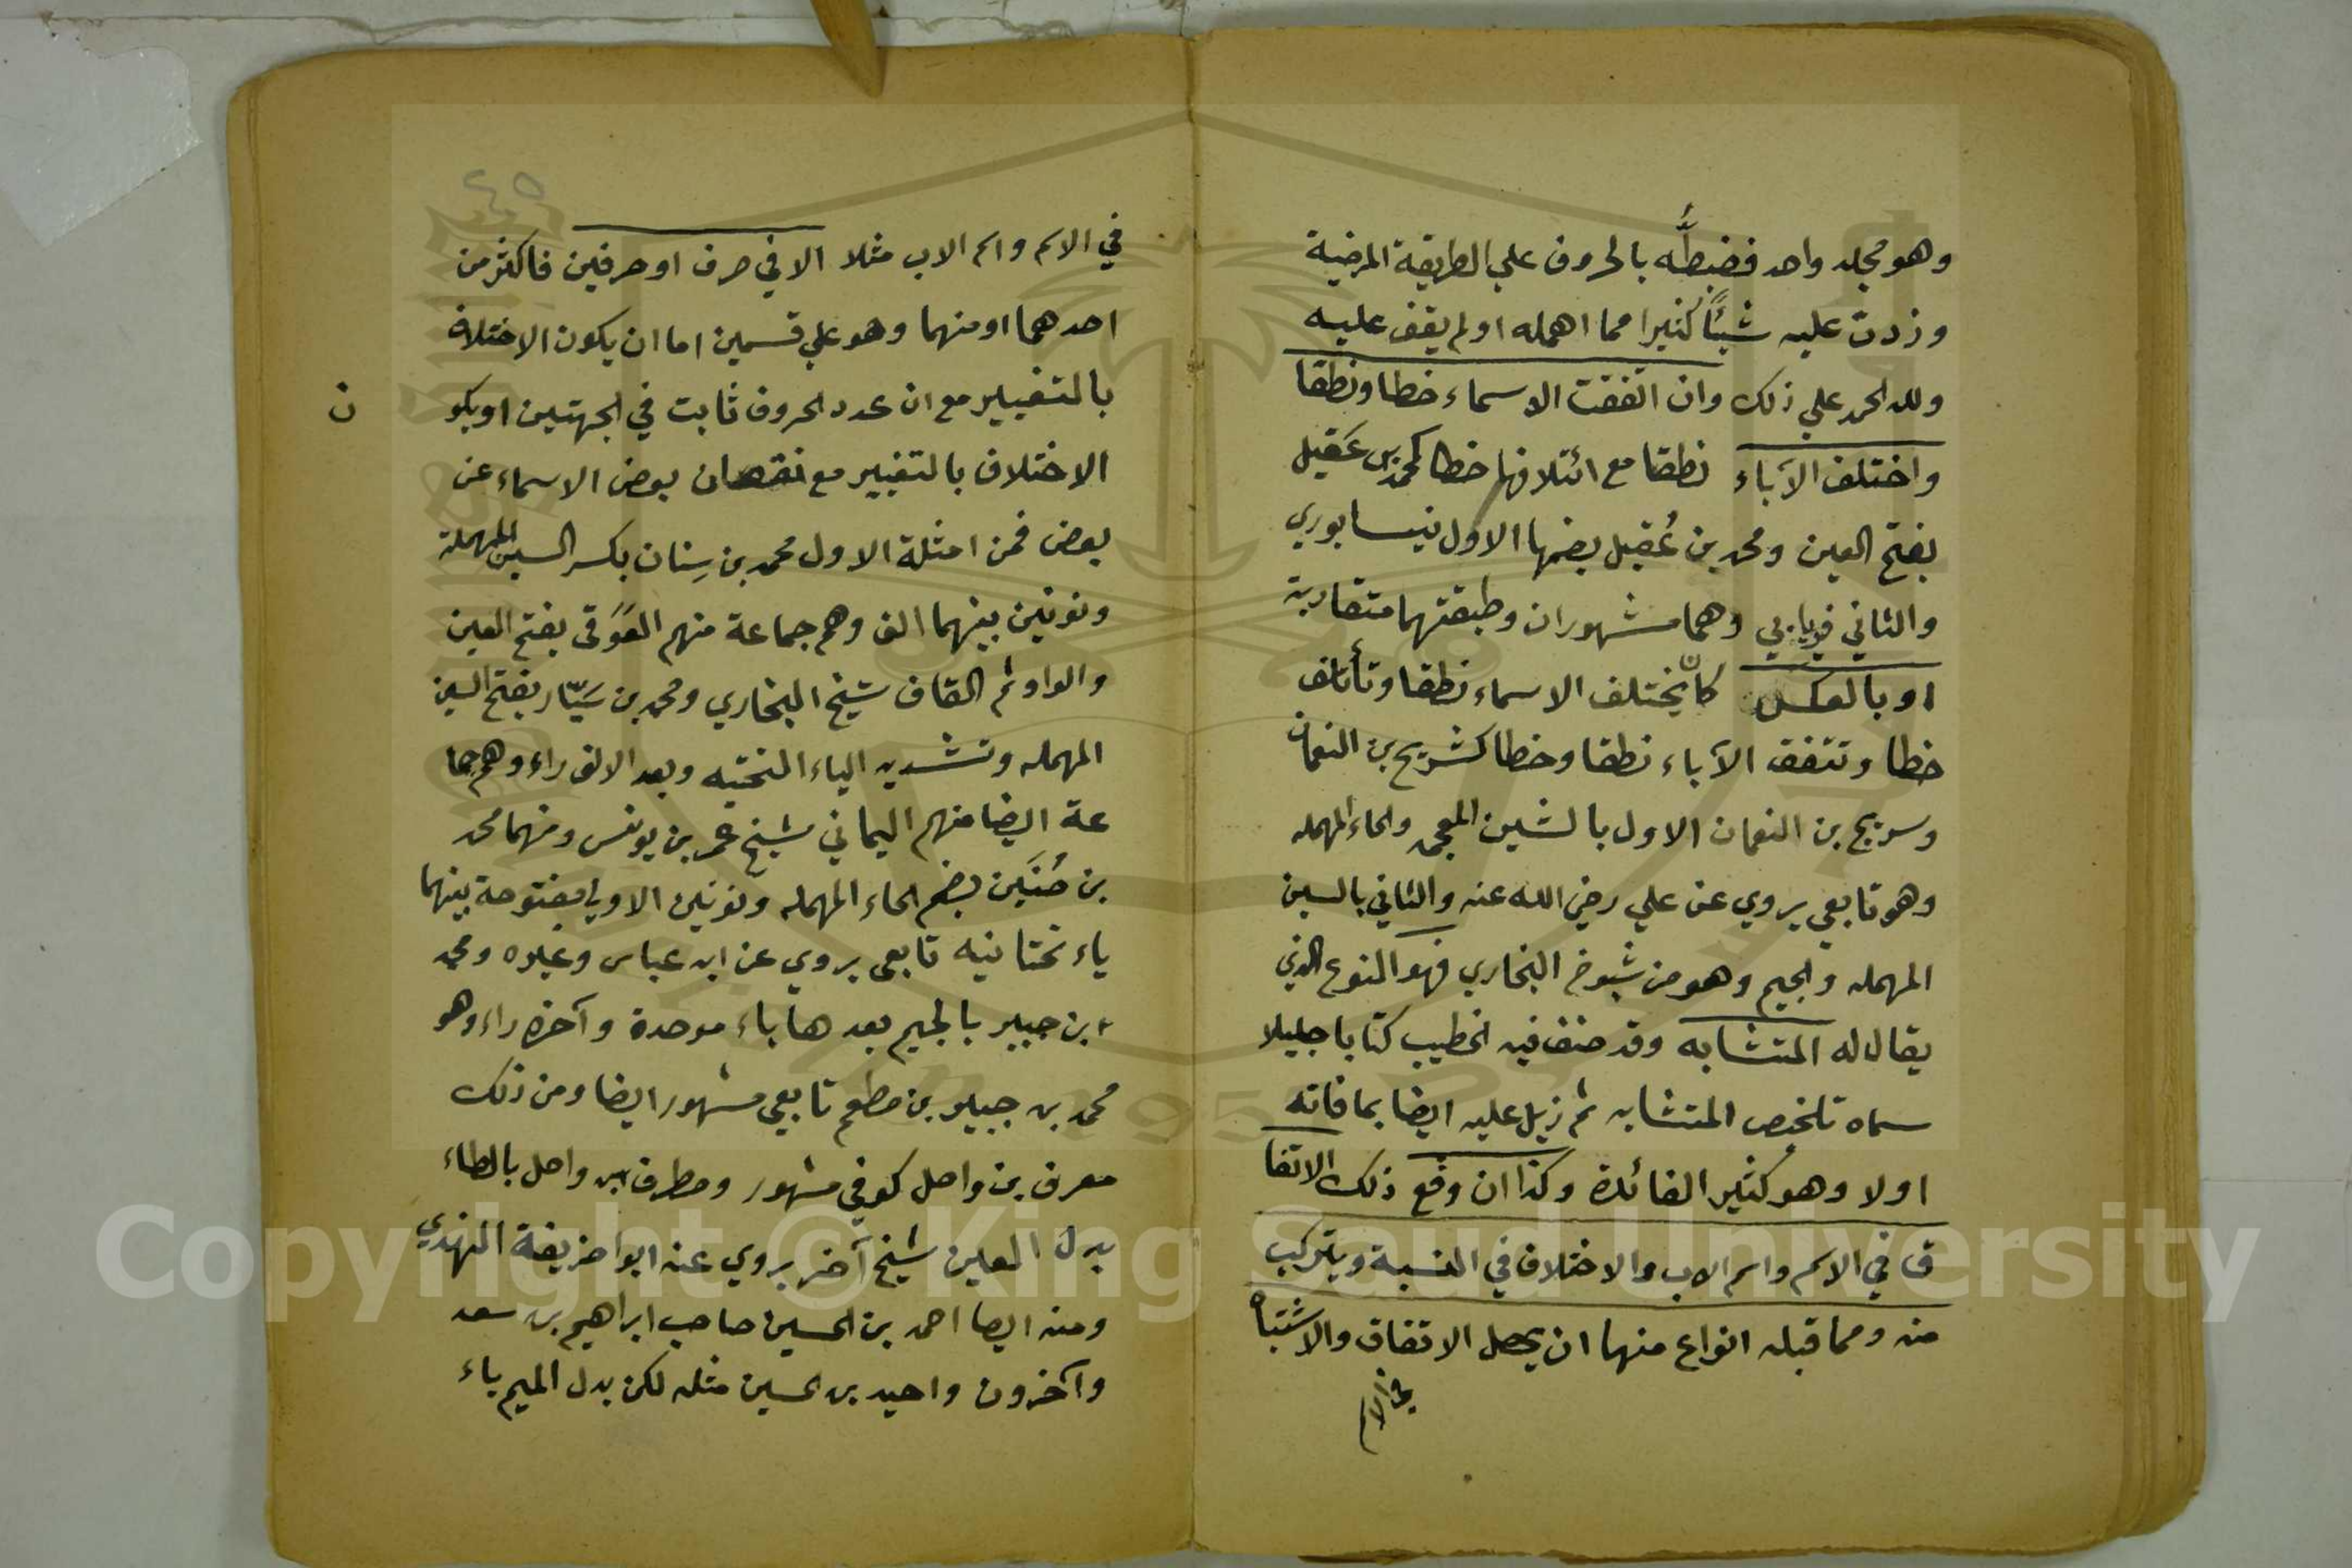 وهو مجلد واحد فضبطُّه بالحروف علي الطريقة المرضية
وزدت عليه شيئًا كثيرا مما اهمله او لم يقف عليه
ولله الحمد علي ذلك وان اتفقت الاسماء خطا ونطقا
واختلف الآباء نطقا مع ائتلافها خطا كمحمد بن عَقيل
بفتح العين ومحمد بن عُقيل بضمها الاول نيسابوري
والثاني فريابي وهما مشهوران وطبقتهما متقاربة
او بالعكس كأن يختلف الاسماء نطقا وتأتلف
خطا وتتفق الآباء نطقا وخطا كشريح بن النعمان
وسريج بن النعمان الاول بالشين المعجمه والحاء المهمله
وهو تابعي يروي عن علي رضي الله عنه والثاني بالسين
المهمله والجيم وهو من شيوخ البخاري فهو النوع الذي
يقال له المتشابه وقد صنف فيه الخطيب كتابا جليلا
سماه تلخيص المتشابه ثم ذيل عليه ايضا بما فاته
اولا وهو كثير الفائدة وكذا ان وقع ذلك الاتفا
ق في الاسم واسم الاب والاختلاف في النسبة ويتركب
منه ومما قبله انواع منها ان يحصل الاتفاق والاشتباه
في الاسم
٤٥
في الاسم واسم الاب مثلا الا في حرف او حرفين فاكثر من
احدهما او منهما وهو علي قسمين اما ان يكون الاختلاف
بالتغيير مع ان عدد الحروف ثابت في الجهتين او يكو ن
الاختلاف بالتغيير مع نقصان بعض الاسماء عن
بعض فمن امثلة الاول محمد بن سِنان بكسر السين المهملة
ونونين بينهما الف وهم جماعة منهم العَوَقي بفتح العين
والواو ثم القاف شيخ البخاري ومحمد بن سَيّار بفتح السين
المهمله وتشديد الياء التحتيه وبعد الالف راء وهم جما
عة ايضا منهم اليماني شيخ عمر بن يونس ومنهما محمد
بن حُنَين بضم الحاء المهمله ونونين الاولي مفتوحة بينهما
ياء تحتانيه تابعي يروي عن ابن عباس وغيره ومحمد
ابن جبير بالجيم بعدها باء موحدة وآخره راء وهو
محمد بن جبير بن مطعم تابعي مشهور ايضا ومن ذلك
معرف بن واصل كوفي مشهور ومطرف بن واصل بالطاء
بدل العين شيخ آخر يروي عنه ابو احذيفة النهدي
ومنه ايضا احمد بن الحسين صاحب ابراهيم بن سعد
وآخرون واحيد بن الحسين مثله لكن بدل الميم ياء
Copyright © King Saud University